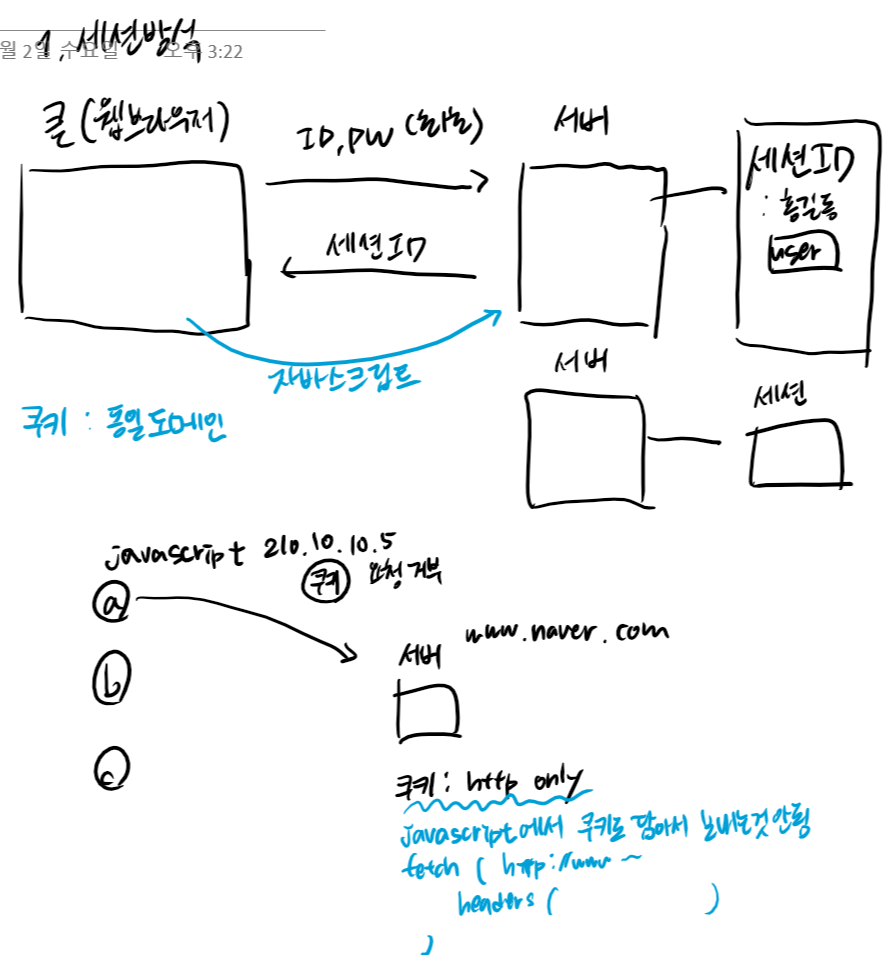 1. 세션방식
월 2일 수요일 오후 3:22
클 (웹브라우저)
ID, PW
서버
세션ID
: 홍길동
user
세션ID
자바스크립트
서버
세션
쿠키 : 동일 도메인
javascript 210.10.10.5
쿠키 요청 거부
a
www.naver.com
서버
b
c
쿠키 : http only
javascript에서 쿠키를 담아서 보내는것 안됨
fetch ( http://www ~
headers ( )
)